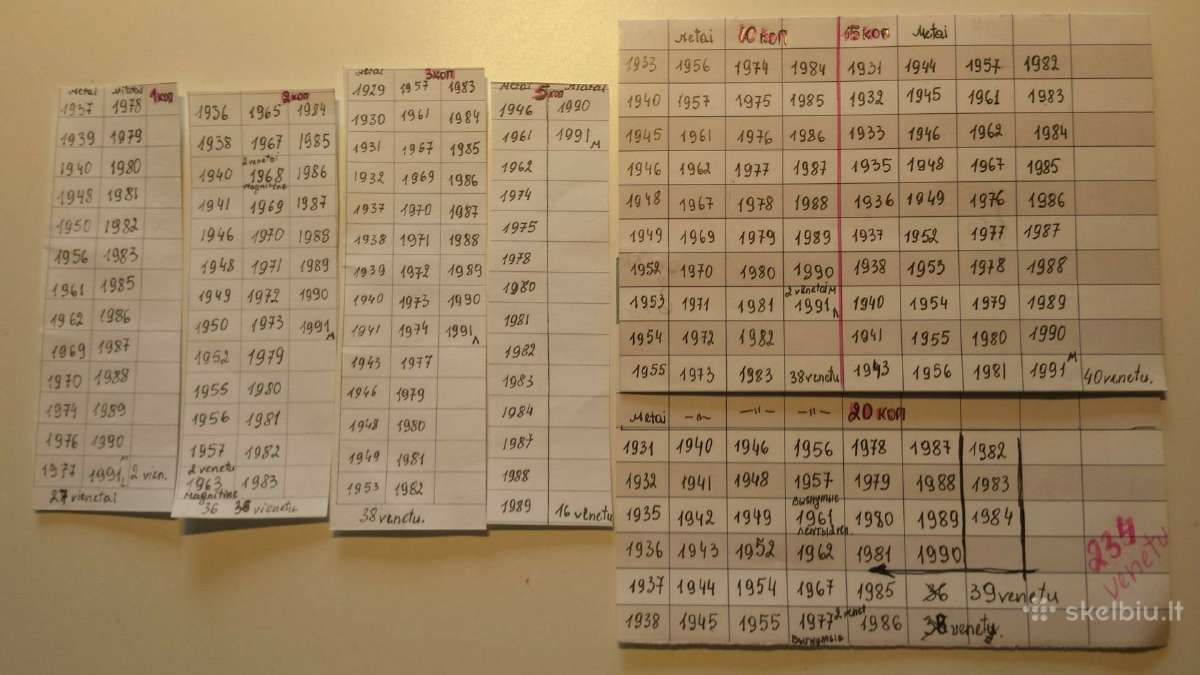 Metai Mitatai 1 коп
1937 1978
1939 1979
1940 1980
1948 1981
1950 1982
1956 1983
1961 1985
1962 1986
1969 1987
1970 1988
1974 1989
1976 1990
1977 1991 2 vien.
27 vienetai
2 коп
1936 1965 1984
1938 1967 1985
2 venetai
1940 1968 1986
magnitinė
1941 1969 1987
1946 1970 1988
1948 1971 1989
1949 1972 1990
1950 1973 1991 м
1952 1979
1955 1980
1956 1981
1957 1982
2 venetu
1963 1983
Magnitinė
36 vienetu
Metai 3 коп
1929 1957 1983
1930 1961 1984
1931 1967 1985
1932 1969 1986
1937 1970 1987
1938 1971 1988
1939 1972 1989
1940 1973 1990
1941 1974 1991 Л
1943 1977
1946 1979
1948 1980
1949 1981
1953 1982
38 venetu.
Metai 5 коп
1946 1990
1961 1991 м
1962
1974
1975
1978
1980
1981
1982
1983
1984
1987
1988
1989 16 venetu
Metai 10 коп 15 коп Metai
1933 1956 1974 1984 1931 1944 1957 1982
1940 1957 1975 1985 1932 1945 1961 1983
1945 1961 1976 1986 1933 1946 1962 1984
1946 1962 1977 1987 1935 1948 1967 1985
1948 1967 1978 1988 1936 1949 1976 1986
1949 1969 1979 1989 1937 1952 1977 1987
1952 1970 1980 1990 1938 1953 1978 1988
2 venetai м
1953 1971 1981 1991 Л 1940 1954 1979 1989
1954 1972 1982 1941 1955 1980 1990
1955 1973 1983 38 venetu 1943 1956 1981 1991 м 40 venetu.
Metai -"- -"- -"- 20 коп
1931 1940 1946 1956 1978 1987 1982
1932 1941 1948 1957 1979 1988 1983
Выгнутые
1935 1942 1949 1961 1980 1989 1984
1936 1943 1952 1962 1981 1990
1937 1944 1954 1967 1985 36 39 venetu
1938 1945 1955 1977 2 venet 1986 38 venetu.
Выгнутые
234
venetu
skelbiu.lt